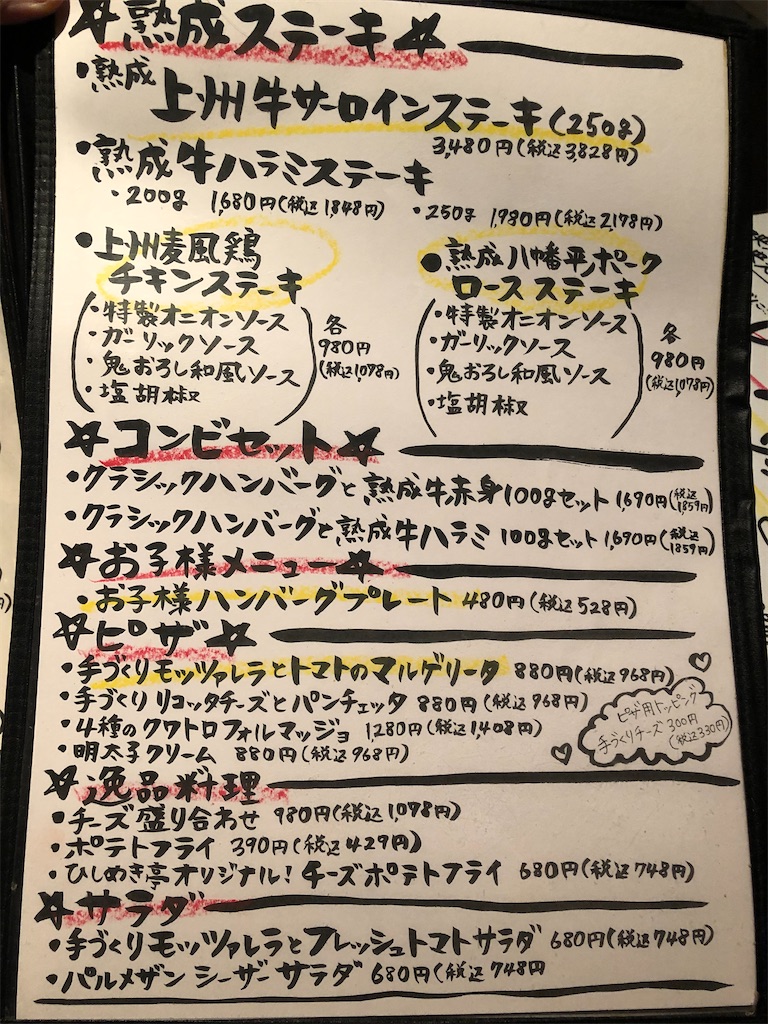 ☆熟成ステーキ☆
・熟成
上州牛サーロインステーキ(250g)
3,480円(税込3,828円)
・熟成牛ハラミステーキ
・200g 1,680円(税込1,848円) ・250g 1,980円(税込2,178円)
・上州麦風鶏
チキンステーキ
・特製オニオンソース
・ガーリックソース
・鬼おろし和風ソース
・塩胡椒
各
980円
(税込1,078円)
・熟成八幡平ポーク
ロースステーキ
・特製オニオンソース
・ガーリックソース
・鬼おろし和風ソース
・塩胡椒
各
980円
(税込1,078円)
☆コンビセット☆
・クラシックハンバーグと熟成牛赤身100gセット 1,690円(税込1,859円)
・クラシックハンバーグと熟成牛ハラミ 100gセット 1,690円(税込1,859円)
☆お子様メニュー☆
・お子様ハンバーグプレート 480円(税込528円)
☆ピザ☆
・手づくりモッツァレラとトマトのマルゲリータ 880円(税込968円)
・手づくりリコッタチーズとパンチェッタ 880円(税込968円)
・4種のクワトロフォルマッジョ 1280円(税込1,408円)
・明太子クリーム 880円(税込968円)
ピザ用トッピング
手づくりチーズ 300円
(税込330円)
☆逸品料理
・チーズ盛り合わせ 980円(税込1,078円)
・ポテトフライ 390円(税込429円)
・ひしめき亭オリジナル!チーズポテトフライ 680円(税込748円)
☆サラダ
・手づくりモッツァレラとフレッシュトマトサラダ 680円(税込748円)
・パルメザンシーザーサラダ 680円(税込748円